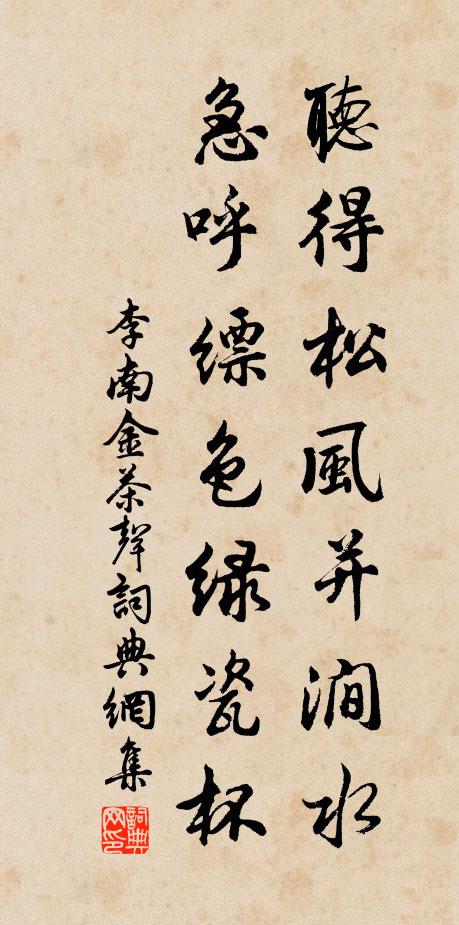 聽得松風并澗水
急呼縹色緑瓷杯
李南金茶聲詞典網集
詞典
网印